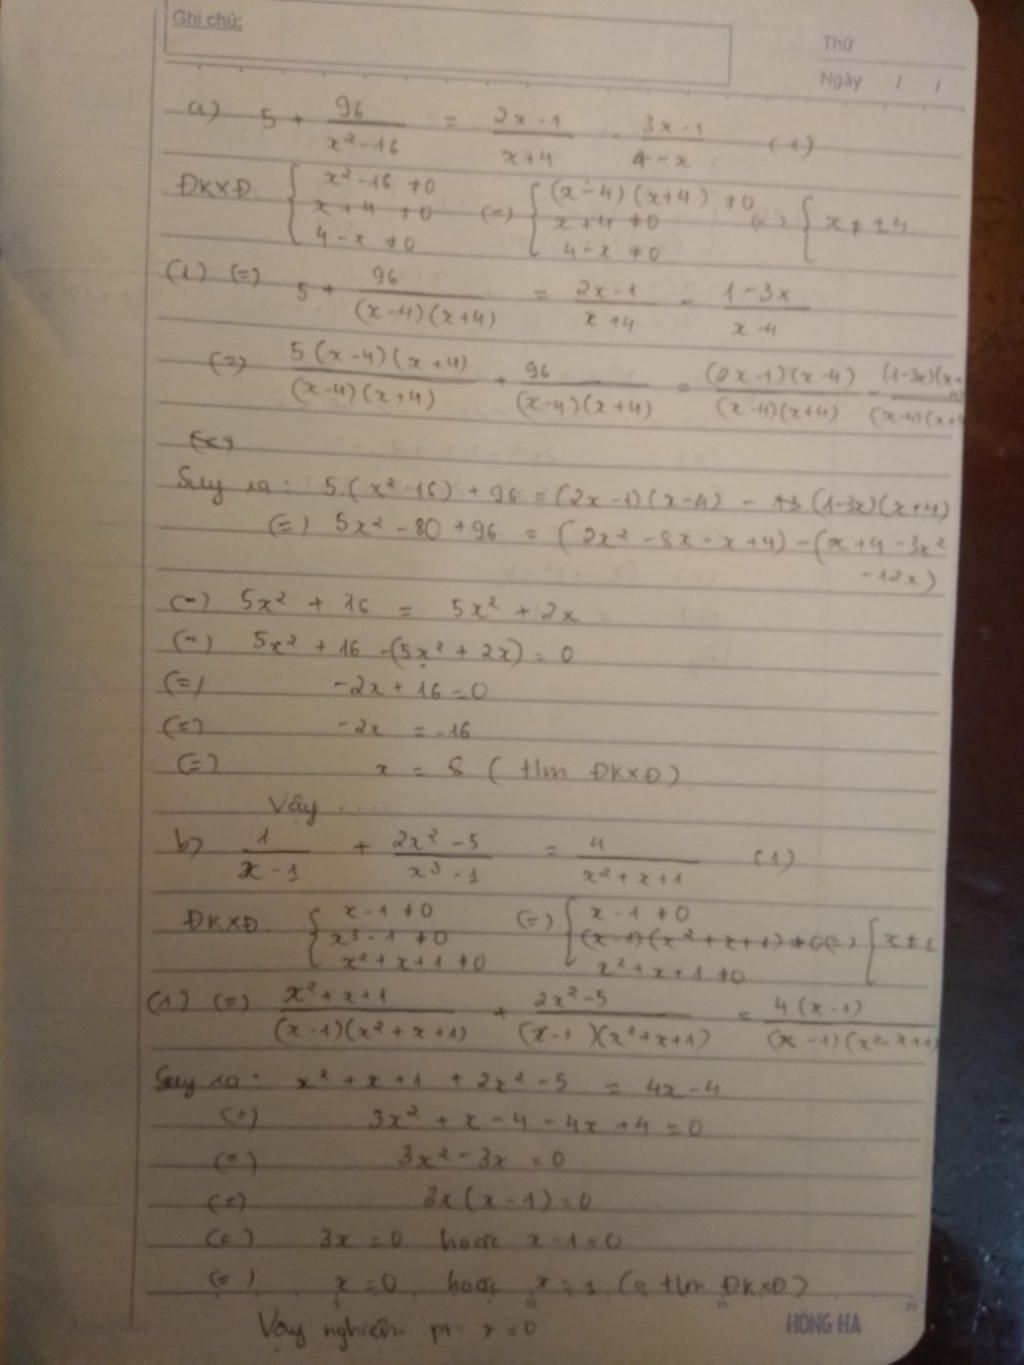 Ghi chú:
Thứ
Ngày / /
a) 5 + 96/(x² - 16) = (2x - 1)/(x + 4) - (3x - 1)/(4 - x) (1)
ĐKXĐ { x² - 16 ≠ 0; x + 4 ≠ 0; 4 - x ≠ 0 (=) { (x - 4)(x + 4) ≠ 0; x + 4 ≠ 0; 4 - x ≠ 0 (=) { x ≠ ±4
(1) (=) 5 + 96/((x - 4)(x + 4)) = (2x - 1)/(x + 4) - (1 - 3x)/(x - 4)
(=) 5(x - 4)(x + 4)/((x - 4)(x + 4)) + 96/((x - 4)(x + 4)) = (2x - 1)(x - 4)/((x - 4)(x + 4)) - (1 - 3x)(x + 4)/((x - 4)(x + 4
Suy ra: 5.(x² - 16) + 96 = (2x - 1)(x - 4) - (1 - 3x)(x + 4)
(=) 5x² - 80 + 96 = (2x² - 8x - x + 4) - (x + 4 - 3x²
- 12x)
(=) 5x² + 16 = 5x² + 2x
(=) 5x² + 16 - (5x² + 2x) = 0
(=) -2x + 16 = 0
(=) -2x = -16
(=) x = 8 (tlm ĐKXĐ)
Vậy ....
b) 1/(x - 1) + (2x² - 5)/(x³ - 1) = 4/(x² + x + 1) (1)
ĐKXĐ { x - 1 ≠ 0; x³ - 1 ≠ 0; x² + x + 1 ≠ 0 (=) { x - 1 ≠ 0; (x - 1)(x² + x + 1) ≠ 0; x² + x + 1 ≠ 0 (=) { x ≠ 1
(1) (=) (x² + x + 1)/((x - 1)(x² + x + 1)) + (2x² - 5)/((x - 1)(x² + x + 1)) = 4(x - 1)/((x - 1)(x² + x + 1)
Suy ra: x² + x + 1 + 2x² - 5 = 4x - 4
(=) 3x² + x - 4 - 4x + 4 = 0
(=) 3x² - 3x = 0
(=) 3x(x - 1) = 0
(=) 3x = 0 hoặc x - 1 = 0
(=) x = 0 hoặc x = 1 (o tlm ĐKXĐ)
Vậy nghiệm pt: x = 0
HONG HA